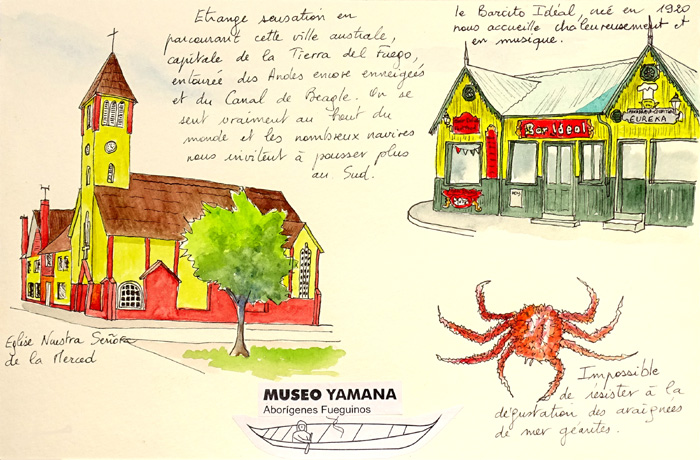 Etrange sensation en
parcourant cette ville australe,
capitale de la Tierra del Fuego,
entourée des Andes encore enneigées
et du Canal de Beagle. On se
sent vraiment au bout du
monde et les nombreux navires
nous invitent à pousser plus
au Sud.
le Barcito Idéal, créé en 1920
nous accueille chaleureusement et
en musique.
Bar Ideal
EUREKA
Eglise Nuestra Señora
de la Merced
MUSEO YAMANA
Aborígenes Fueguinos
Impossible
de résister à la
dégustation des araignées
de mer géantes.